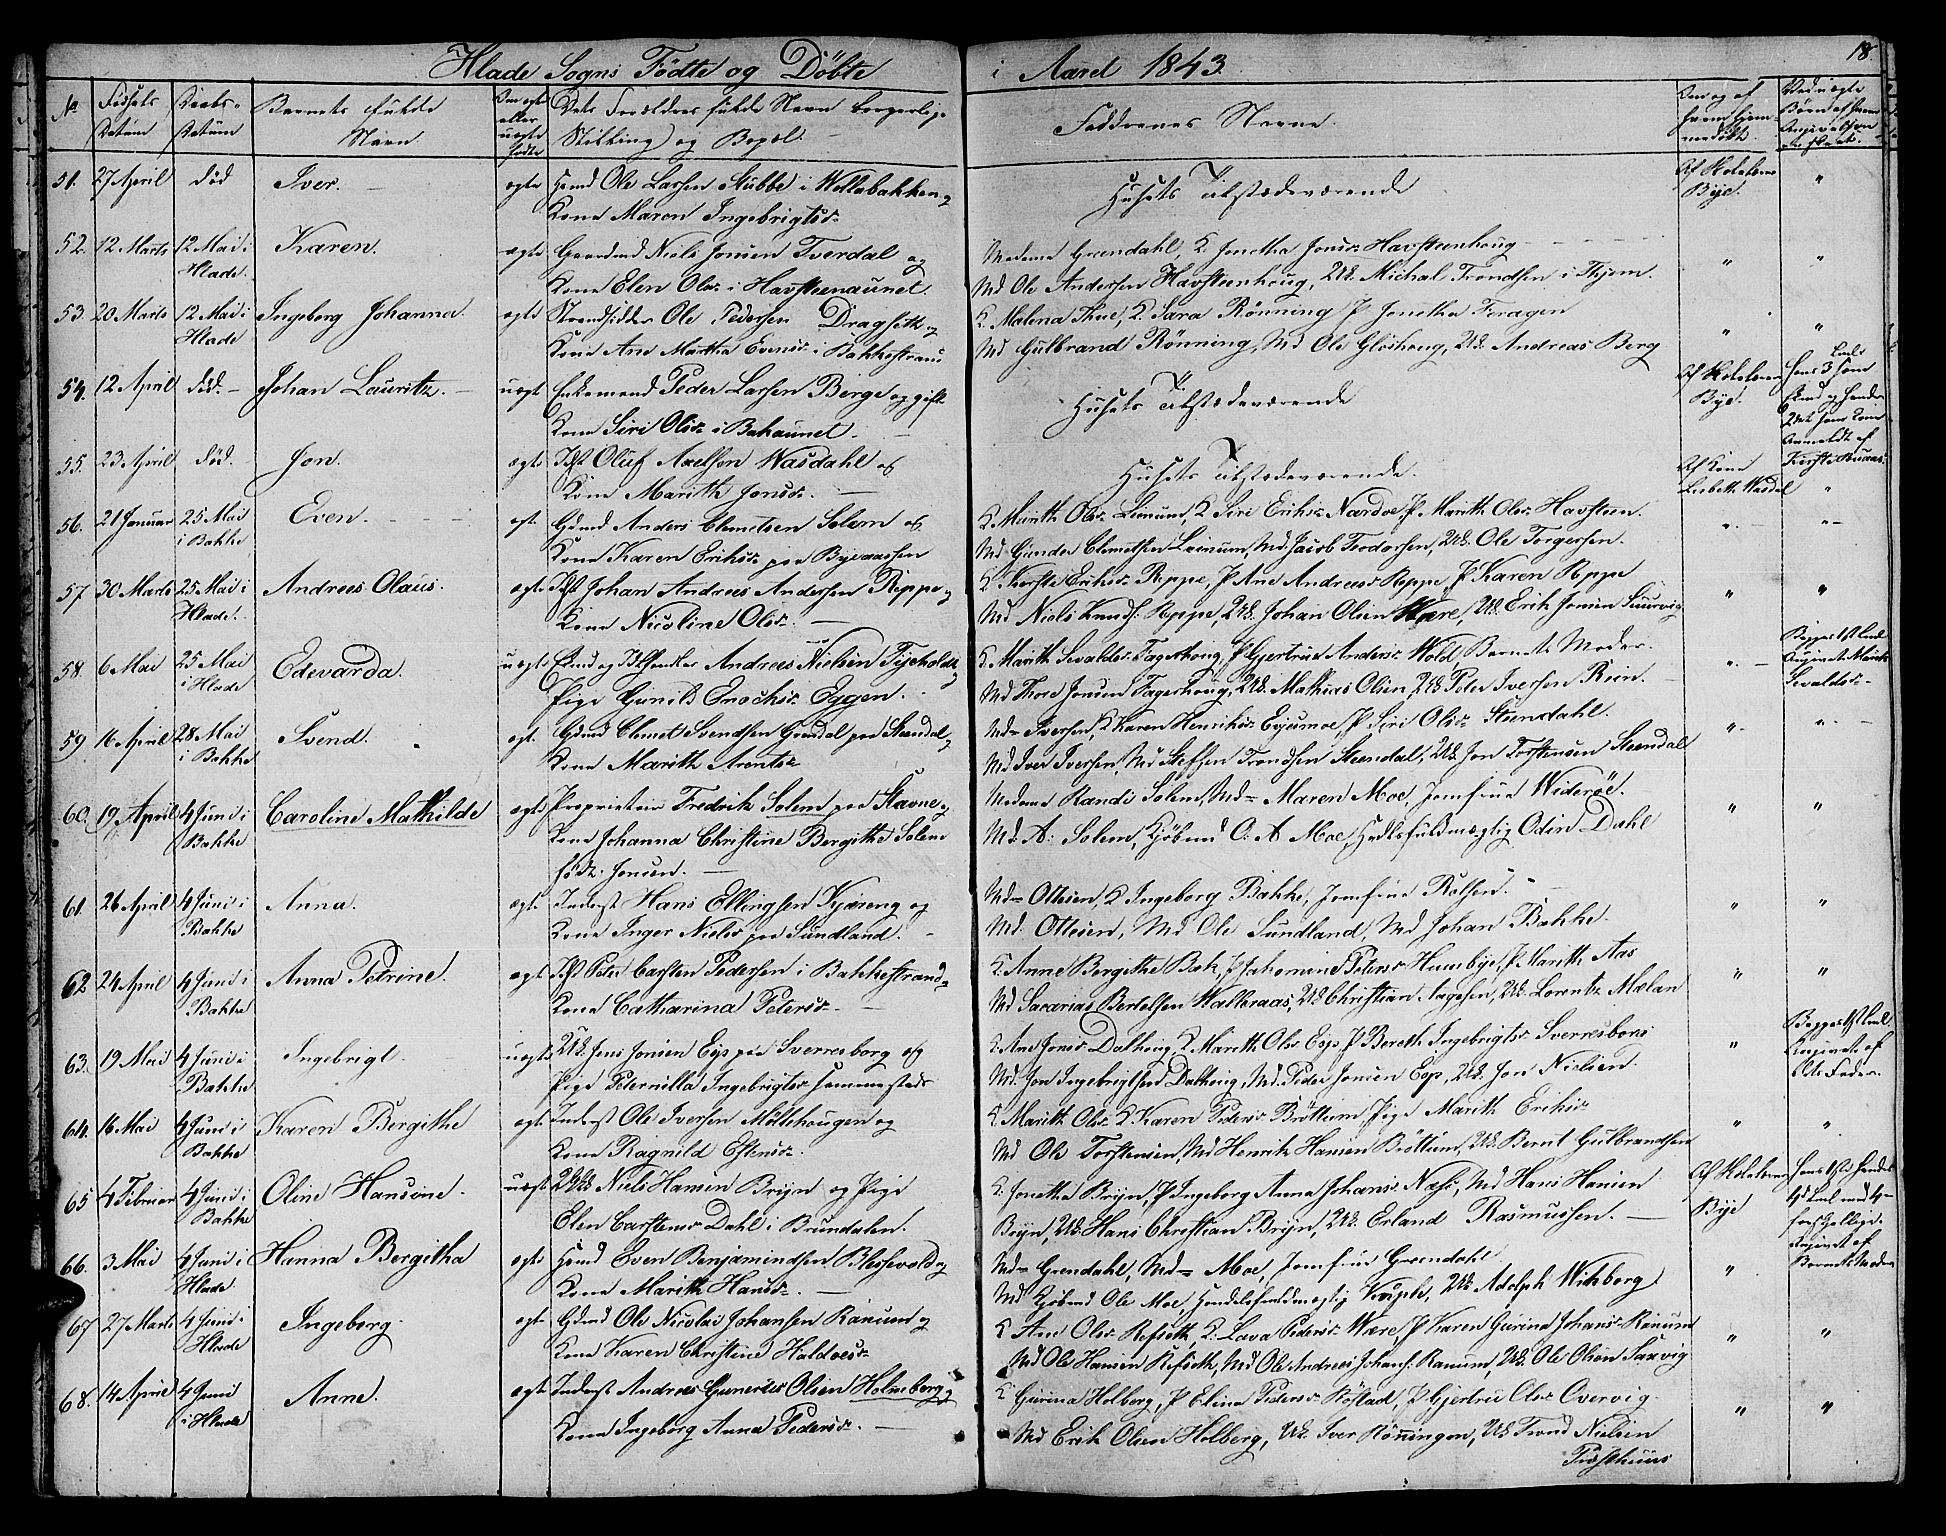 Hlade Sogns Fødte og Døbte i Aaret 1843. 18
No Fødsels Datum Daabs Datum Barnets fulde Navn Om ægte eller uægte fødte Dets Forældres fulde Navn borgerlige Stilling og Bopæl. Faddernes Navne. Om og af hvem hjemmedøbt.
51. 27 April død Iver. ægte Hmd Ole Larsen Stubbe i Wollabakken og
Kone Maren Ingebrigtsd.
Husets Tilstædeværende
Af
Bye.
52. 12 Marts 12 Mai i Hlade. Karen. ægte Gaardmd Niels Jonsen Tverdal og
Kone Elen Olsd. i Havsteenaunet.
Madame Grendahl, K. Jonetha Jonsd. Havsteenhoug
Md Ole Andersen Havsteenhoug, Uk. Michal Trondsen i Thjem.
53. 20 Marts 12 Mai i Hlade Ingeborg Johanna. ægte Strandsidder Ole Pedersen Dragseth og
Kone Ane Martha Evensd. i Bakkestrand
K. Malena Thue, K. Sara Rønning P Jonetha Foragen
Md Gulbrand Rønning, Md Ole Gløshoug, Uk. Andreas Berg
54. 12 April død. Johan Lauritz. uægt Enkemand Peder Larsen Berge og gift
Kone Siri Olsd. i Bakaunet.
Husets Tilstædeværende
Bye.
55. 23 April død. Jon. ægte Oluf Axelsen Wasdahl og
Kone Marith Jonsd.
Husets Tilstædeværende.
Af Kone
Lisbeth Wasdal
56. 21 Januar 25 Mai i Bakke Even. ægt. Gdmd Anders Clemetsen Solem og
Kone Karen Eriksd. paa Byeaassen
K. Marith Olsd. Leinum, K Siri Eriksd. Nardoe, P Marith Olsd. Havsteen.
Md Gunder Clemetsen Leinum, Md. Jacob Teodorsen, Uk. Ole Torgersen.
57 30 Marts 25 Mai i Hlade. Andreas Olaus. ægte Johan Andreas Andersen Reppe og
Kone Nicoline Olsd.
K Kirsti Eriksd. Reppe, P Ane Andreasd. Reppe, P Karen Reppe
Md Niels Knuds. Reppe, Uk. Johan Olsen Være, Uk. Erik Jonsen Suurvig
58. 6 Mai 25 Mai i Hlade Edevarda. uægte Andreas Nielsen Tyeholdt og
Pige Gunild Enochsd. Eggen.
K Marith Sevaldsd. Fagerhoug, P Gjertrud Andersd. Wold, Barnets Moder.
Md Thore Jonsen Fagerhoug, Uk. Mathias Olsen, Uk Peter Iversen Rein.
Sevaldsd.
59. 16 April 28 Mai i Bakke Svend. ægt. Gdmd Clemet Svendsen Grendal paa Stendal og
Kone Marith Arentsd.
Md Iversen, K Karen Henriksd. P Siri Olsd. Steendahl.
Md Iver Iversen, Md Steffen Trondsen Steendal, Uk. Jon Torstensen Steendal
60. 19 April 4 Juni i Bakke Caroline Mathilde ægte Proprietair Fredrik Solem paa Stavne og
Kone Johanna Christine Bergithe Solem
født Jensen.
Madame Randi Solem, Md Maren Moe, Jomfrue Widerøe.
Md. A. Solem, Kjøbmd O. A Moe, Handlsfuldmægtig Odin Dahl
61. 26 April 4 Juni i Bakke Anna. ægte Inderst Hans Ellingsen Kjæreng og
Kone Inger Nielsd paa Sundland.
Md Ottesen, K Ingeborg Bakke, Jomfrue Rolfsen.
Md. Ottesen, Md Ole Sundland, Md Johan Bakke.
62 24 April 4 Juni i Bakke Anna Petrine. ægte Peter Carsten Pedersen i Bakkestrand
Kone Catharina Petersd.
K. Anne Bergithe Bak, P Marith Aas
Md Sacarias Bertelsen Walleraas, Uk Christian Aagesen, Uk. Lorentz Mælan
63. 19 Mai 4 Juni i Bakke Ingebrigt. uægte Uk. Jens Jonsen Esp paa Sverresborg og
Pige Peternilla Ingebrigtsd
K. Ane Jonsd. Dalhoug, K. Marith Olsd Esp, P Bereth Ingebrigtsd. Sverresborg
Md. Jon Ingebrigtsen Dalhoug, Md. Peder Jonsen Esp, Uk. Jon Nielsen.
64. 16 Mai 4 Juni i Bakke Karen Bergithe ægte Inderst Ole Iversen Møllehaugen og
Kone Ragnild Estensd.
K. Marith Olsd. K Karen Pedersd. Brøttum Pige Marith Eriksd.
Md Ole Torstensen, Md Henrik Hansen Brøttum, Uk. Bernt Gulbrandsen
65 4 Februar 4 Juni i Bakke Oline Hansine. uægte Uk. Niels Hansen Bryn og Pige
Elen Carstensd Dahl i Brundalen.
K. Jonetha Bryn, P Ingeborg Anna Johansd. Næss, Md Hans Hansen
Bryn, Uk. Hans Christian Bryn, Uk. Erland Rasmussen.
Bye
66. 3 Mai 4 Juni i Hlade Hanna Bergitha ægte Hmd Even Benjamindsen Blessevold og
Kone Marith Hansd.
Md Grendahl, Md Moe, Jomfrue Grendahl
Md Kjøbmd Ole Moe, Handelsfuldmægtig Uk Adolph Wihborg
Barnets Moder
67 27 Marts 4 Juni i Hlade Ingeborg. ægte Gdmd Ole Nicolai Johansen Ranum og
Kone Karen Christine Haldosd.
K Ane Olsd. Refseth K. Lava Pedersd. Være, P Karen Gurina Johansd. Ranum
Md Ole Hansen Refseth, Md Ole Andreas Johans. Ranum, Uk. Ole Olsen Saxvig
68. 14 April 4 Juni i Hlade Anne. ægte Inderst Andreas Gunerius Olsen Holmberg og
Kone Ingeborg Anna Pedersd.
K Gurina Holberg, P Elina Pedersd. Røstad, P Gjertrud Olsd. Overvig.
Md Erik Olsen Holberg, Uk. Iver Rønningen, Uk Trond Nielsen
Presthuus